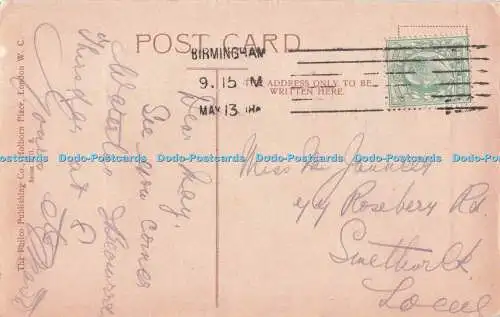 POST CARD
BIRMINGHAM
9.15 M
MAY 13
THE ADDRESS ONLY TO BE
WRITTEN HERE.
The Philco Publishing Co., Holborn Place, London W. C.
Dear May,
See you corner
Waterloo
Thursday at 8
Yours
Miss M
44 Rosebery Rd.
Smethwick
Local
Dodo-Postcards Dodo-Postcards Dodo-Postcards Dodo-Postcards Dodo-Postcards